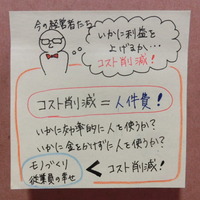 今の経営者たち
いかに利益を
上げるか…
コスト削減!
コスト削減=人件費!
いかに効率的に人を使うか?
いかに金をかけずに人を使うか?
モノづくり
従業員の幸せ
< コスト削減!